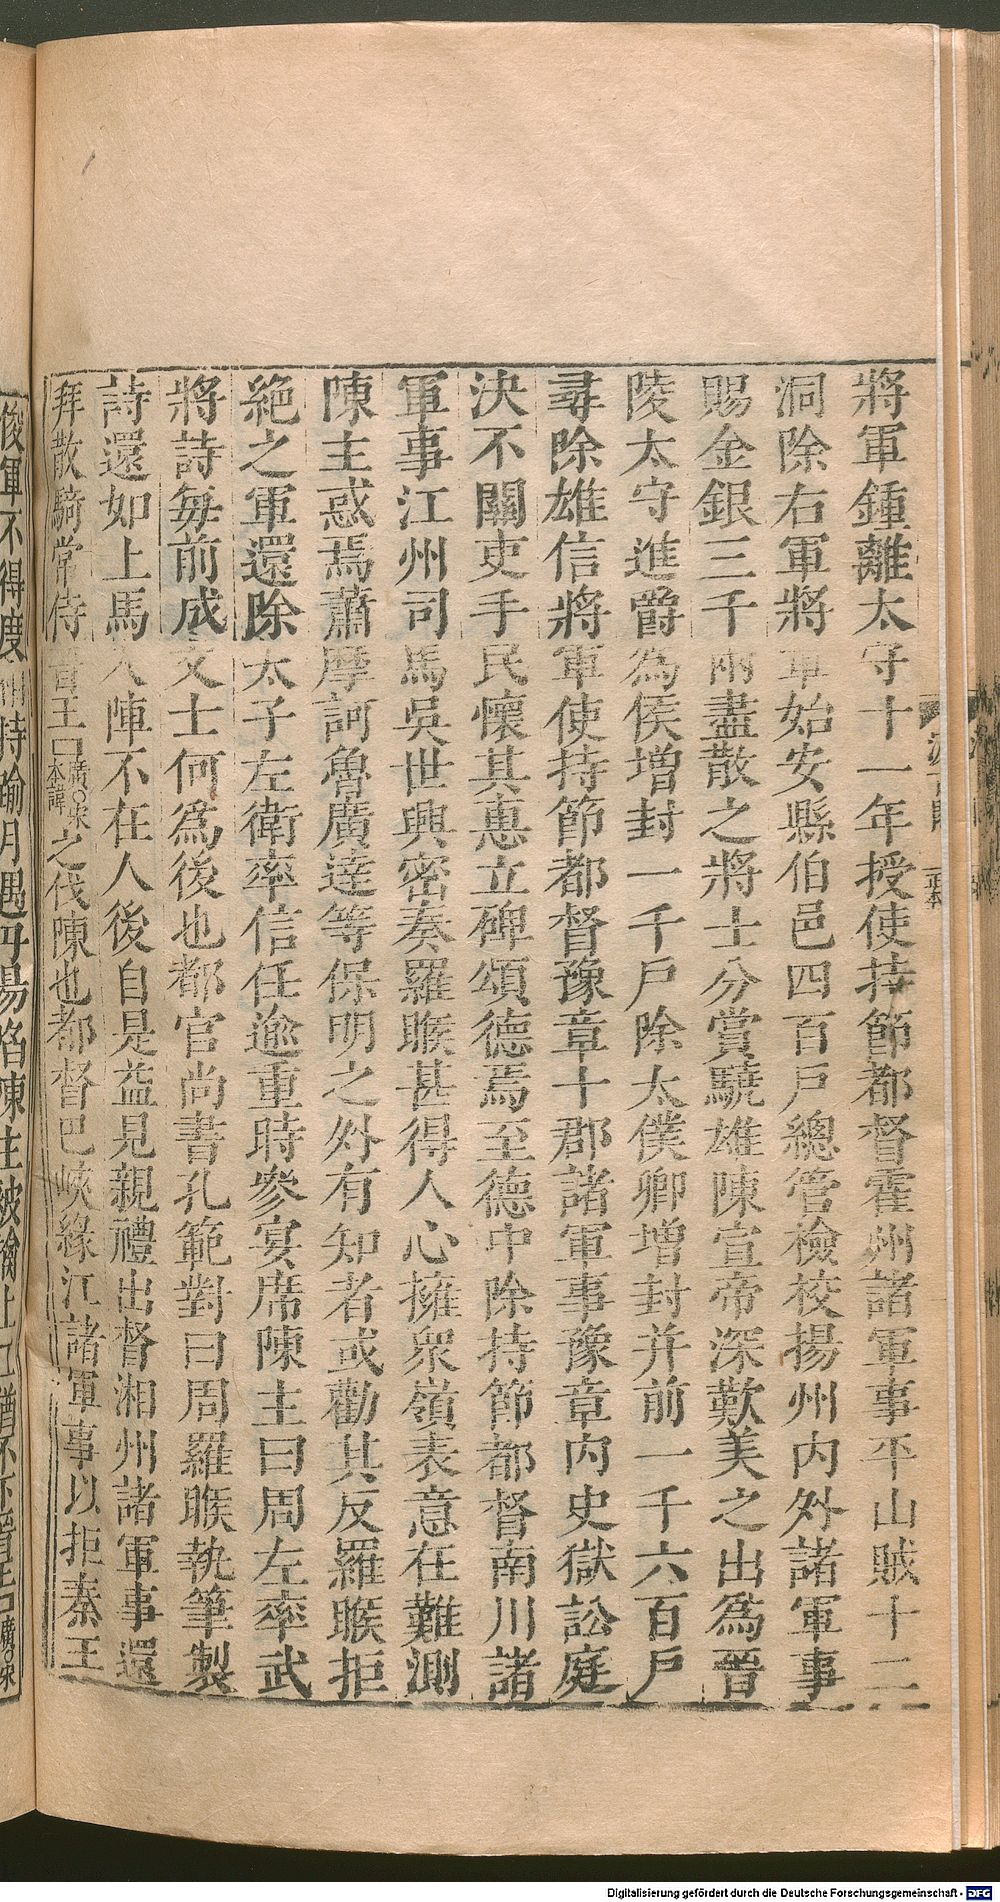 將軍鍾離太守十一年授使持節都督霍州諸軍事平山賊十二
洞除右軍將軍始安縣伯邑四百戶總管檢校揚州內外諸軍事
賜金銀三千兩盡散之將士分賞驍雄陳宣帝深歎美之出為晉
陵太守進爵為侯增封一千戶除太僕卿增封并前一千六百戶
尋除雄信將軍使持節都督豫章十郡諸軍事豫章內史獄訟庭
決不關吏手民懷其惠立碑頌德焉至德中除持節都督南川諸
軍事江州司馬吳世興密奏羅睺甚得人心擁眾嶺表意在難測
陳主惑焉蕭摩訶魯廣達等保明之外有知者或勸其反羅睺拒
絕之軍還除太子左衛率信任逾重時參宴席陳主曰周左率武
將詩每前成文士何為後也都官尚書孔範對曰周羅睺執筆製
詩還如上馬入陣不在人後自是益見親禮出督湘州諸軍事還
拜散騎常侍晉王口廣○宋本諱之伐陳也都督巴峽緣江諸軍事以拒秦王
俊軍不得度相持踰月遇丹陽陷陳主被擒上江猶不下晉王口廣○宋
Digitalisierung gefördert durch die Deutsche Forschungsgemeinschaft - DFG